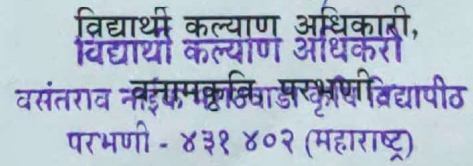 विद्यार्थी कल्याण अधिकारी,
विद्यार्थी कल्याण अधिकारी
वनामकृवि परभणी
वसंतराव नाईक मराठवाडा कृषि विद्यापीठ
परभणी - ४३१ ४०२ (महाराष्ट्र)